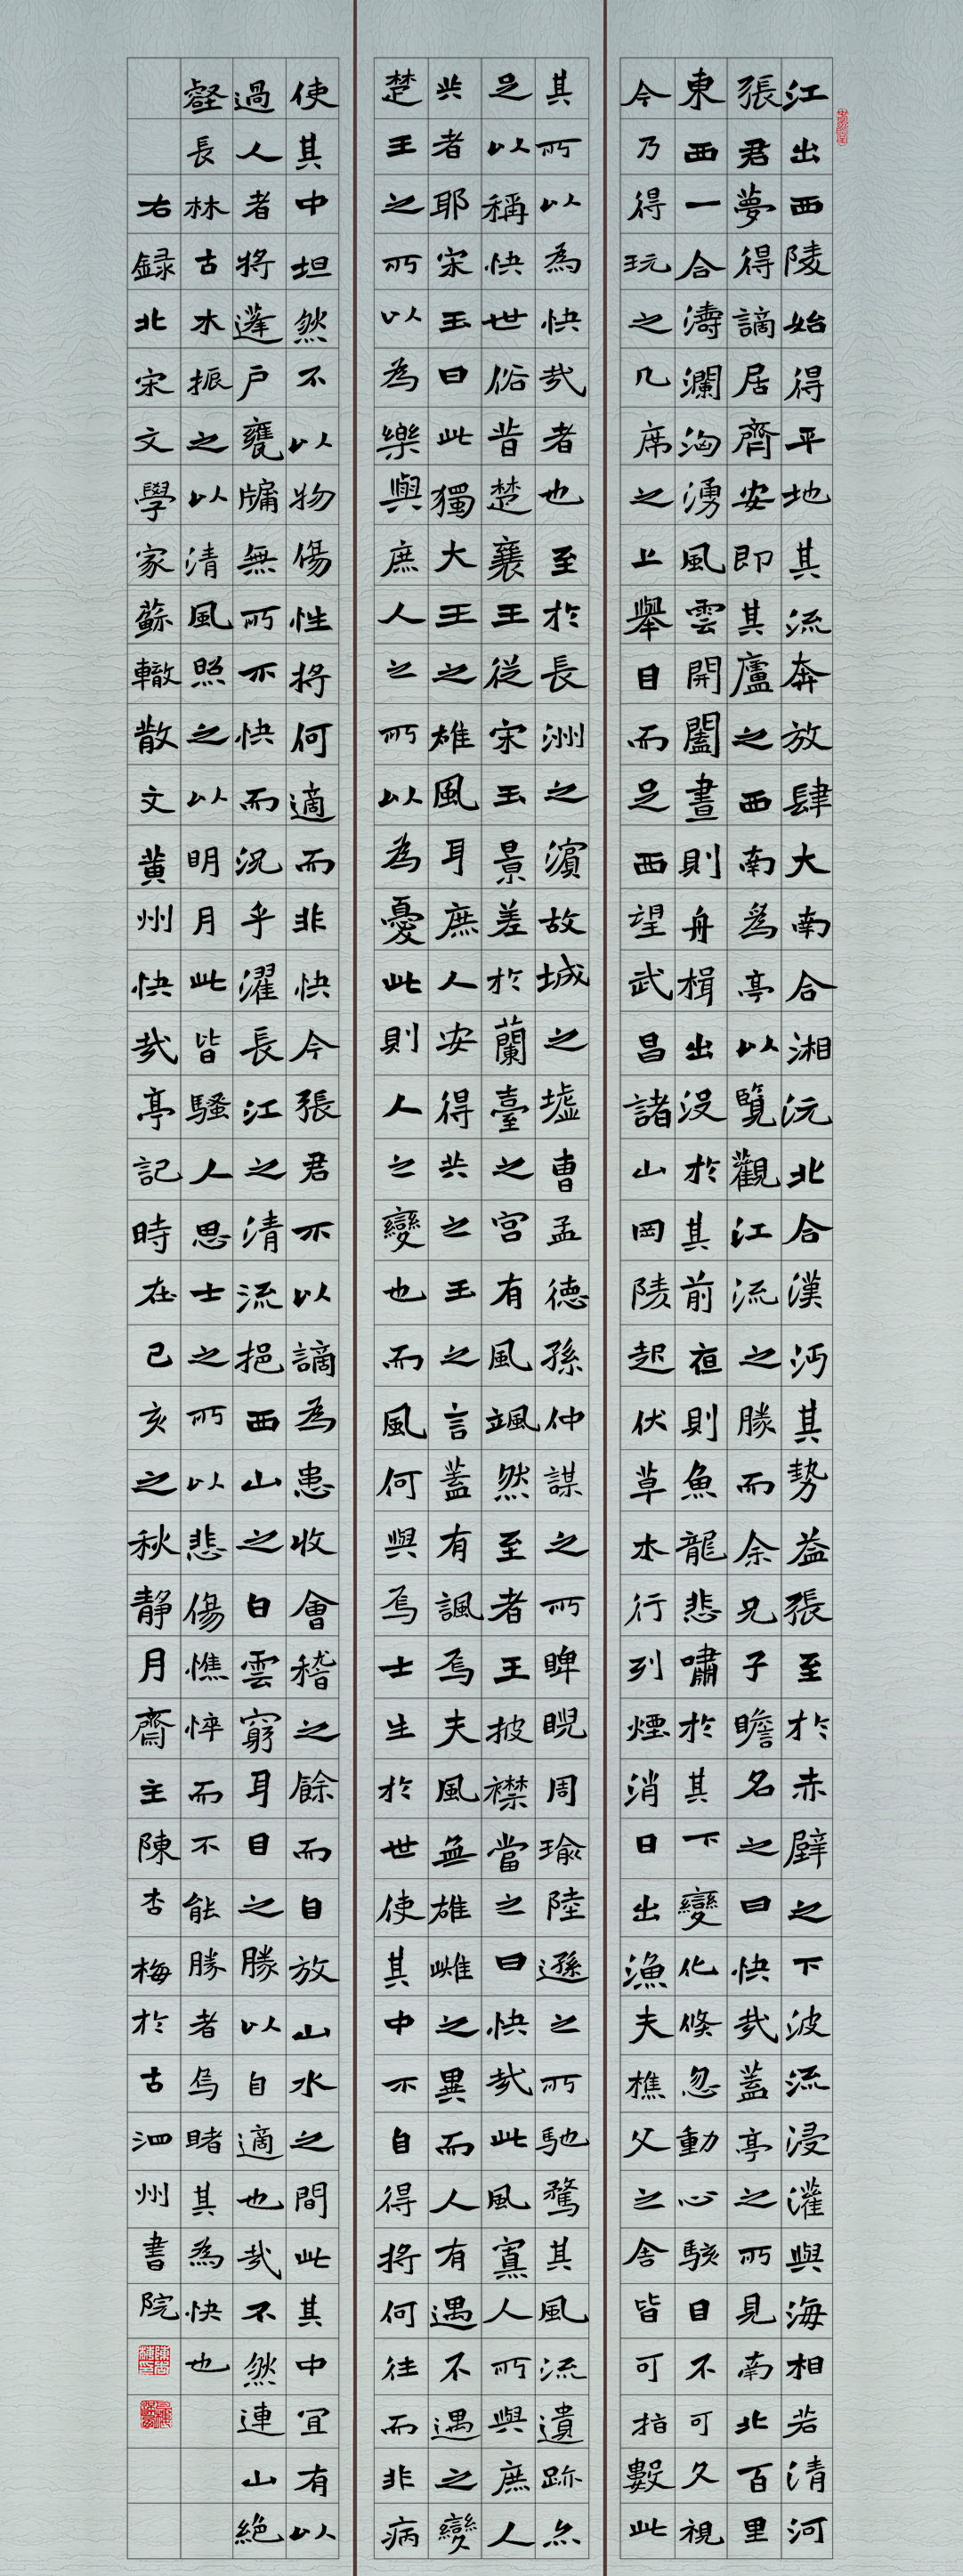 江出西陵始得平地其流奔放肆大南合湘沅北合漢沔其勢益張至於赤壁之下波流浸灌與海相若清河
張君夢得謫居齊安即其廬之西南爲亭以覽觀江流之勝而余兄子瞻名之曰快哉蓋亭之所見南北百里
東西一合濤瀾洶湧風雲開闔晝則舟楫出没於其前夜則魚龍悲嘯於其下變化倏忽動心駭目不可久視
今乃得玩之几席之上舉目而足西望武昌諸山岡陵起伏草木行列煙消日出漁夫樵父之舍皆可指數此
其所以為快哉者也至於長洲之濱故城之墟曹孟德孫仲謀之所睥睨周瑜陸遜之所馳騖其風流遺跡亦
足以稱快世俗昔楚襄王從宋玉景差於蘭臺之宮有風颯然至者王披襟當之曰快哉此風寡人所與庶人
共者耶宋玉曰此獨大王之雄風耳庶人安得共之玉之言蓋有諷焉夫風無雄雌之異而人有遇不遇之變
楚王之所以為樂與庶人之所以為憂此則人之變也而風何與焉士生於世使其中不自得將何往而非病
使其中坦然不以物傷性將何適而非快今張君不以謫為患收會稽之餘而自放山水之間此其中宜有以
過人者將蓬戶甕牖無所不快而況乎濯長江之清流挹西山之白雲窮耳目之勝以自適也哉不然連山絶
壑長林古木振之以清風照之以明月此皆騷人思士之所以悲傷憔悴而不能勝者烏睹其為快也
右録北宋文學家蘇轍散文黄州快哉亭記時在己亥之秋靜月齋主陳杏梅於古泗州書院